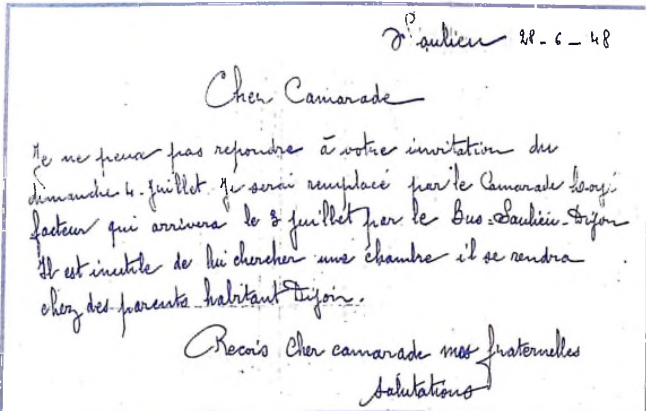 Saulieu 28-6-48
Cher Camarade
Je ne peux pas repondre à votre invitation du
dimanche 4 Juillet. Je serai remplacé par le Camarade
facteur qui arrivera le 3 juillet par le Bus-Saulieu-Dijon
Il est inutile de lui chercher une chambre il se rendra
chez des parents habitant Dijon.
Recois Cher camarade mes fraternelles
salutations